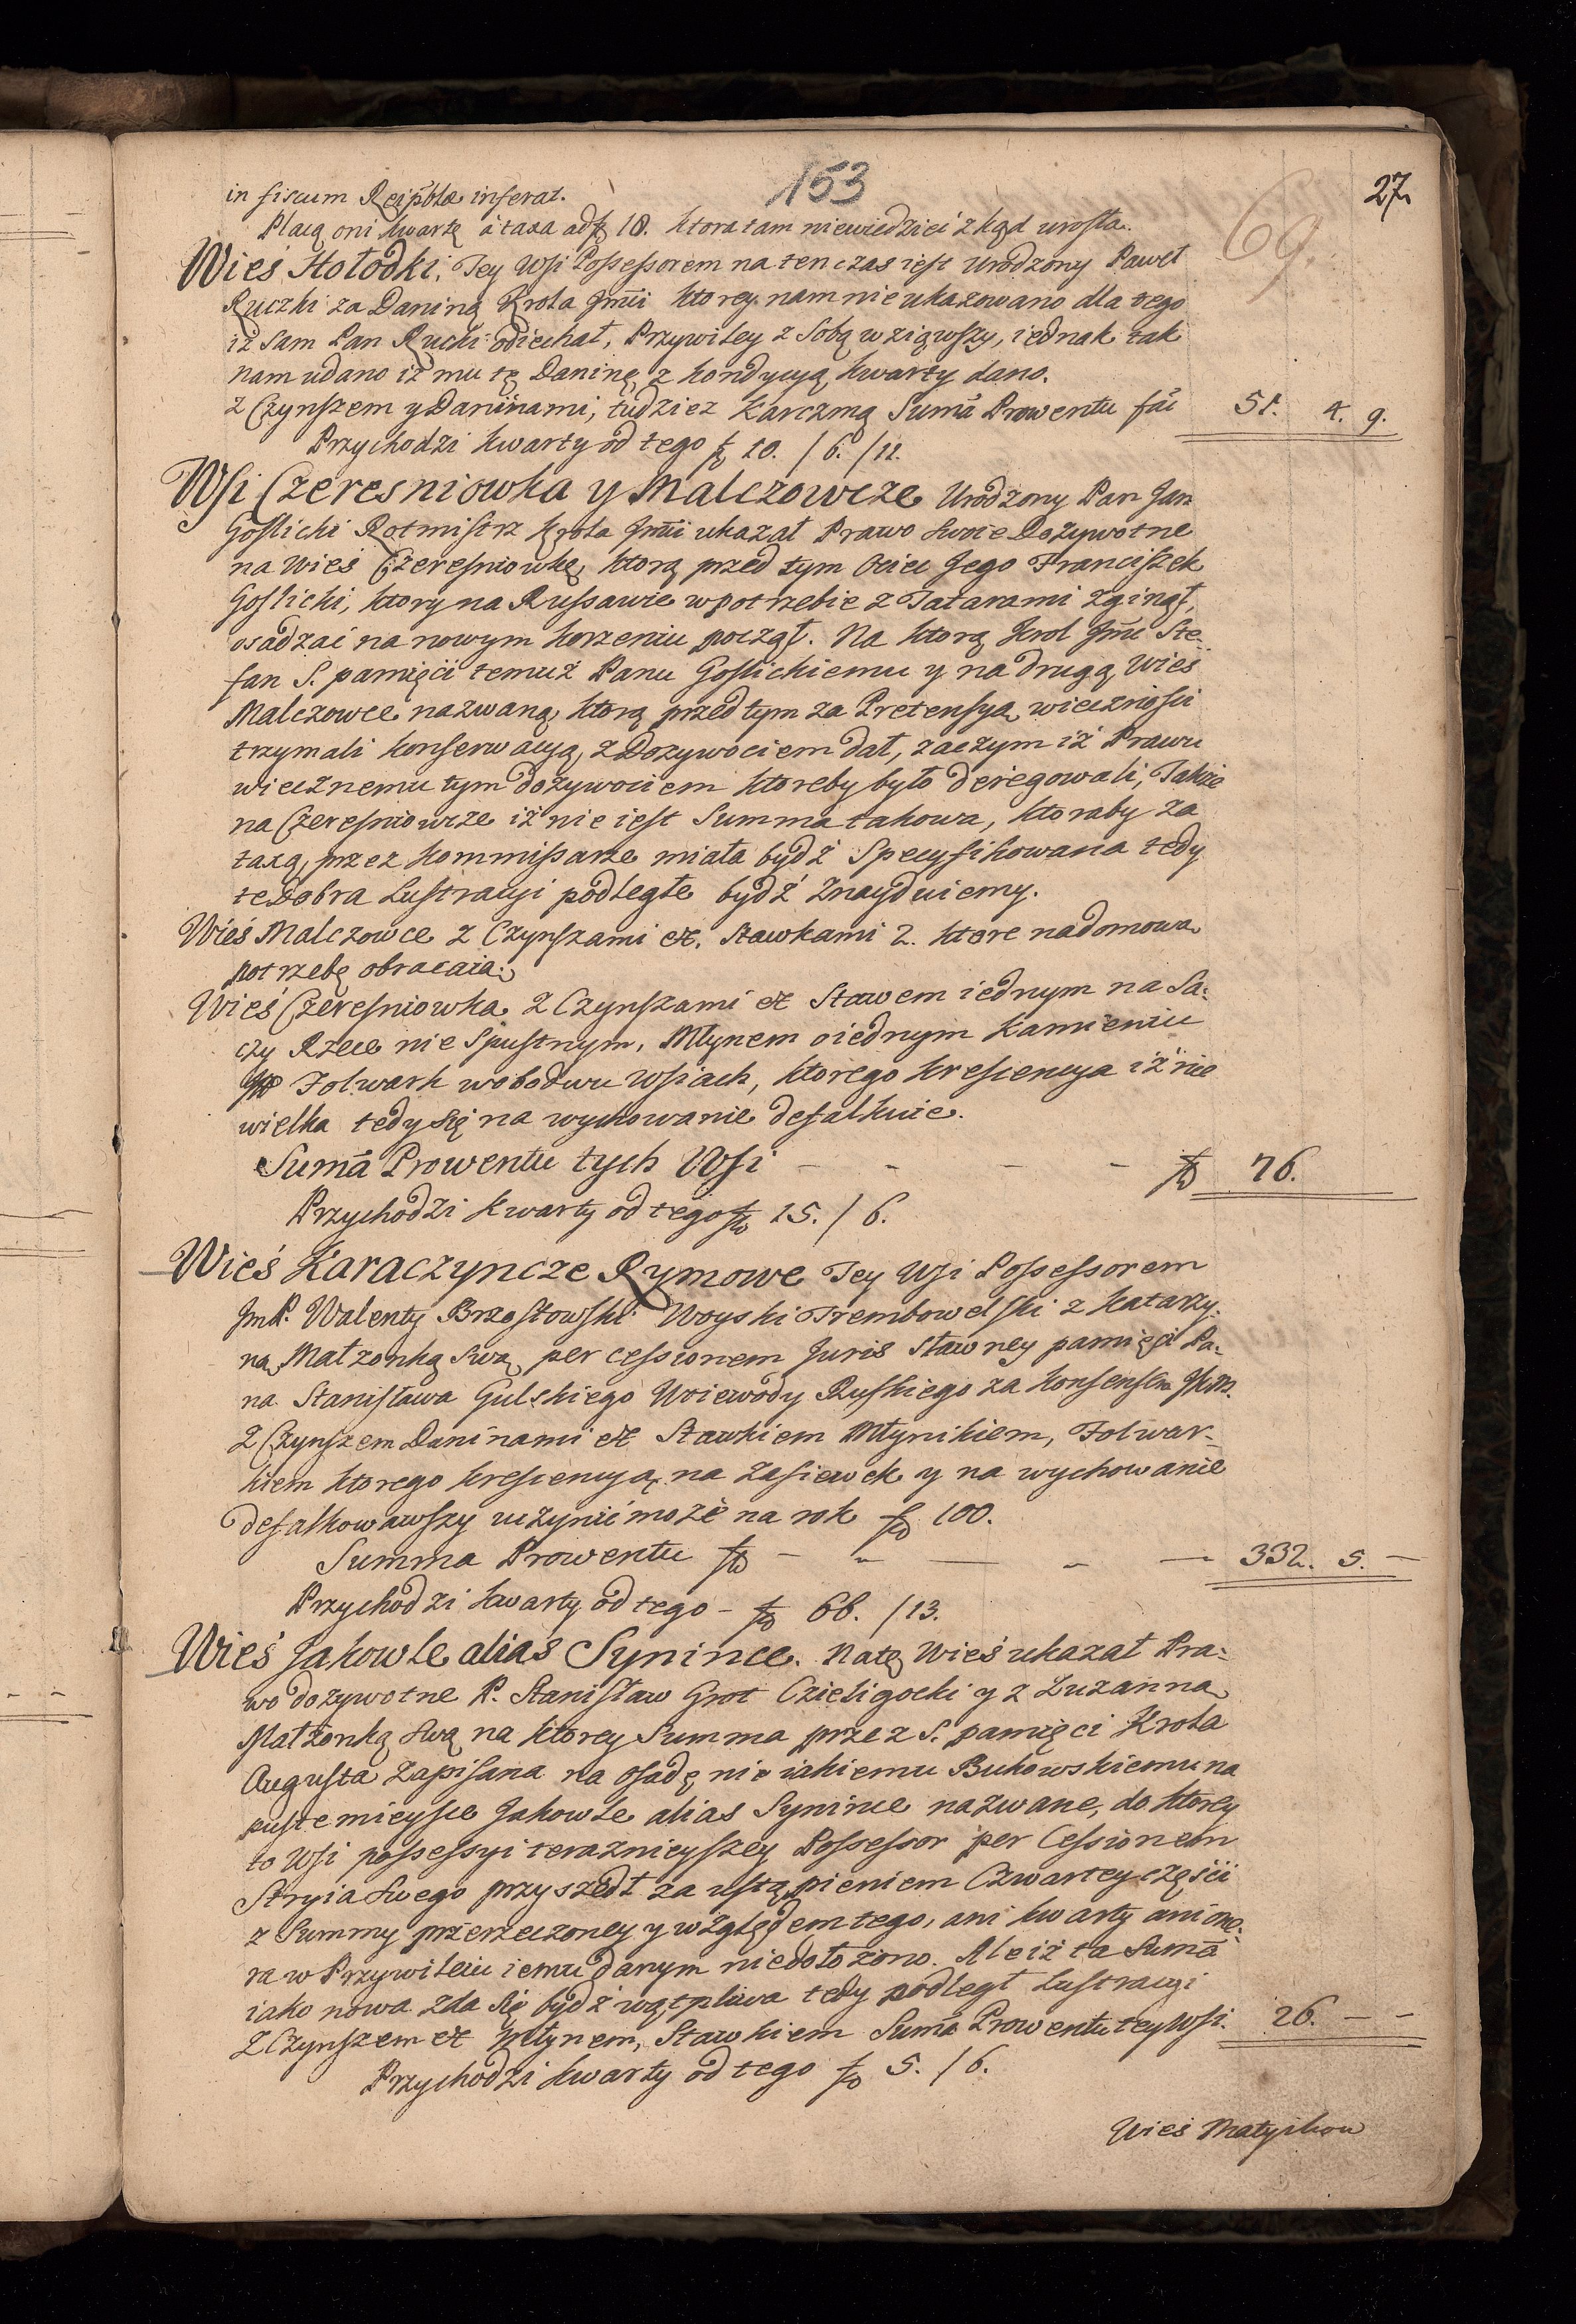 153
69.
27.
in fiscum Reipblæ inferat.
Płacą oni kwartę à taxa ad f 18. ktora tam niewiedzieć zkąd urosła.
Wieś Hołodki. Tey Wsi Possessorem na ten czas iest Urodzony Paweł
Ruczki za Daniną Krola Jmći ktorey nam nie ukazowano dla tego
iż Sam Pan Rucki odiechał, Przywiley z Sobą wziąwszy, iednak tak
nam udano iż mu tę Daninę z kondycyą kwarty dano.
z Czynszem y Daninami, tudziez Karczmą Suma Prowentu fa 51. 4. 9.
Przychodzi kwarty od tego f 10. / 6. / 11.
Wsi Czeresniowka y Malczowcze Urodzony Pan Jan
Goslicki Rotmistrz Krola Jmći ukazał Prawo Swoie Dożywotne
na Wies Czeresniowkę, ktorą przed tym Ociec Jego Franciszek
Goslicki, ktory na Russawie w potrzebie z Tatarami zginął,
osadzać na nowym korzeniu począł. Na ktorą Krol Jmć Ste
fan S. pamięci temuż Panu Goslickiemu y na drugą Wieś
Malczowce nazwaną, ktorą przed tym za Pretensyą wiecznosci
trzymali konserwacyą z Dozywociem dał, zaczym iż Prawu
wiecznemu tym dożywociem ktoreby było deregowali, Także
na Czeresniowcze iż nie iest Summa takowa, ktoraby za
taxą przez kommissarze miała bydź Specyfikowana tedy
te Dobra Lustracyi podległe bydź Znayduiemy.
Wieś Malczowce z Czynszami et. Stawkami 2. ktore na domową
potrzebę obracaią.
Wieś Czeresniowka z Czynszami et Stawem iednym na Sa:
czy Rzece nie Spustnym, Młynem o iednym Kamieniu
Folwark w obodwu Wsiach, ktorego krescencya iż nie
wielka tedy się na wychowanie defalkuie.
Suma Prowentu tych Wsi - - - - f 76.
Przychodzi kwarty od tego f 15. / 6.
Wieś Karaczyncze Rymowe Tey Wsi Possessorem
JmP. Walenty Brzostowski Woyski Trembowelski z Katarzy:
ną Małzonką Swą per cessionem Juris Sławney pamięci Pa:
na Stanisława Gulskiego Woiewody Ruskiego za konsensem JKM.
z Czynszem Daninami et Stawkiem Młynikiem, Folwar:
kiem ktorego krescencyą na Zasiewek y na wychowanie
defalkowawszy uczynić może na rok f 100.
Summa Prowentu f - - - - - 332. 5. -
Przychodzi kwarty od tego - f 66. / 13.
Wieś Jakowle alias Synince. Na tę Wieś ukazał Pra:
wo dozywotne P. Stanisław Grot Czieligocki y z Zuzanną
Małżonką Swą na ktorey Summa przez S. pamięci Krola
Augusta Zapisana na osadę nieiakiemu Bukowskiemu na
puste mieysce Jakowle alias Synince nazwane, do ktorey
to Wsi possessyi teraznieyszey Possessor per Cessionem
Stryia Swego przyszedł za ustąpieniem Czwartey części
z Summy przerzeczoney y względem tego, ani kwarty ani one:
ra w Przywileiu iemu danym niedołożono. Ale iż ta Suma
iako nowa zda się bydź wątpliwa tedy podległ Lustracyi
z Czynszem et młynem, Stawkiem Suma Prowentu tey Wsi. 26. - -
Przychodzi kwarty od tego f 5. / 6.
Wieś Matyikow